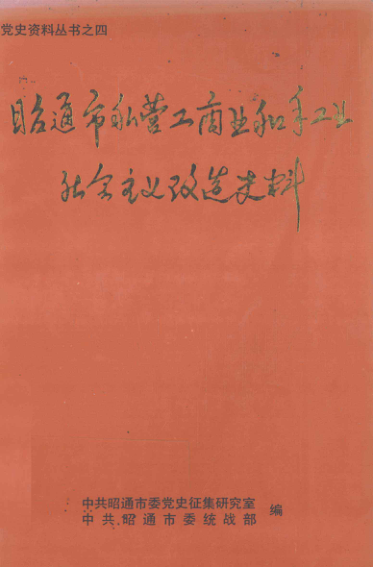 党史资料丛书之四
昭通市私营工商业和手工业
社会主义改造史料
中共昭通市委党史征集研究室
中共昭通市委统战部 编